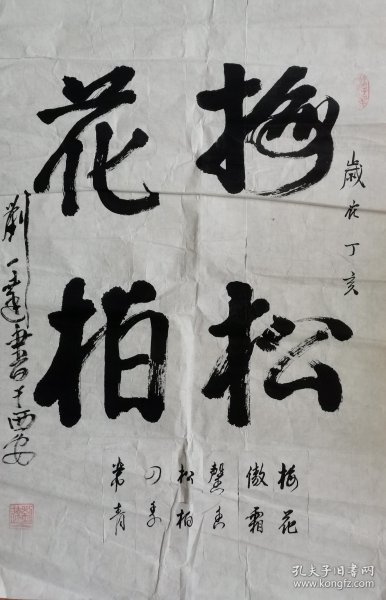 歲在丁亥
梅花
松柏
梅花
傲霜
馨香
松柏
四季
常青
書于西安
孔夫子旧书网